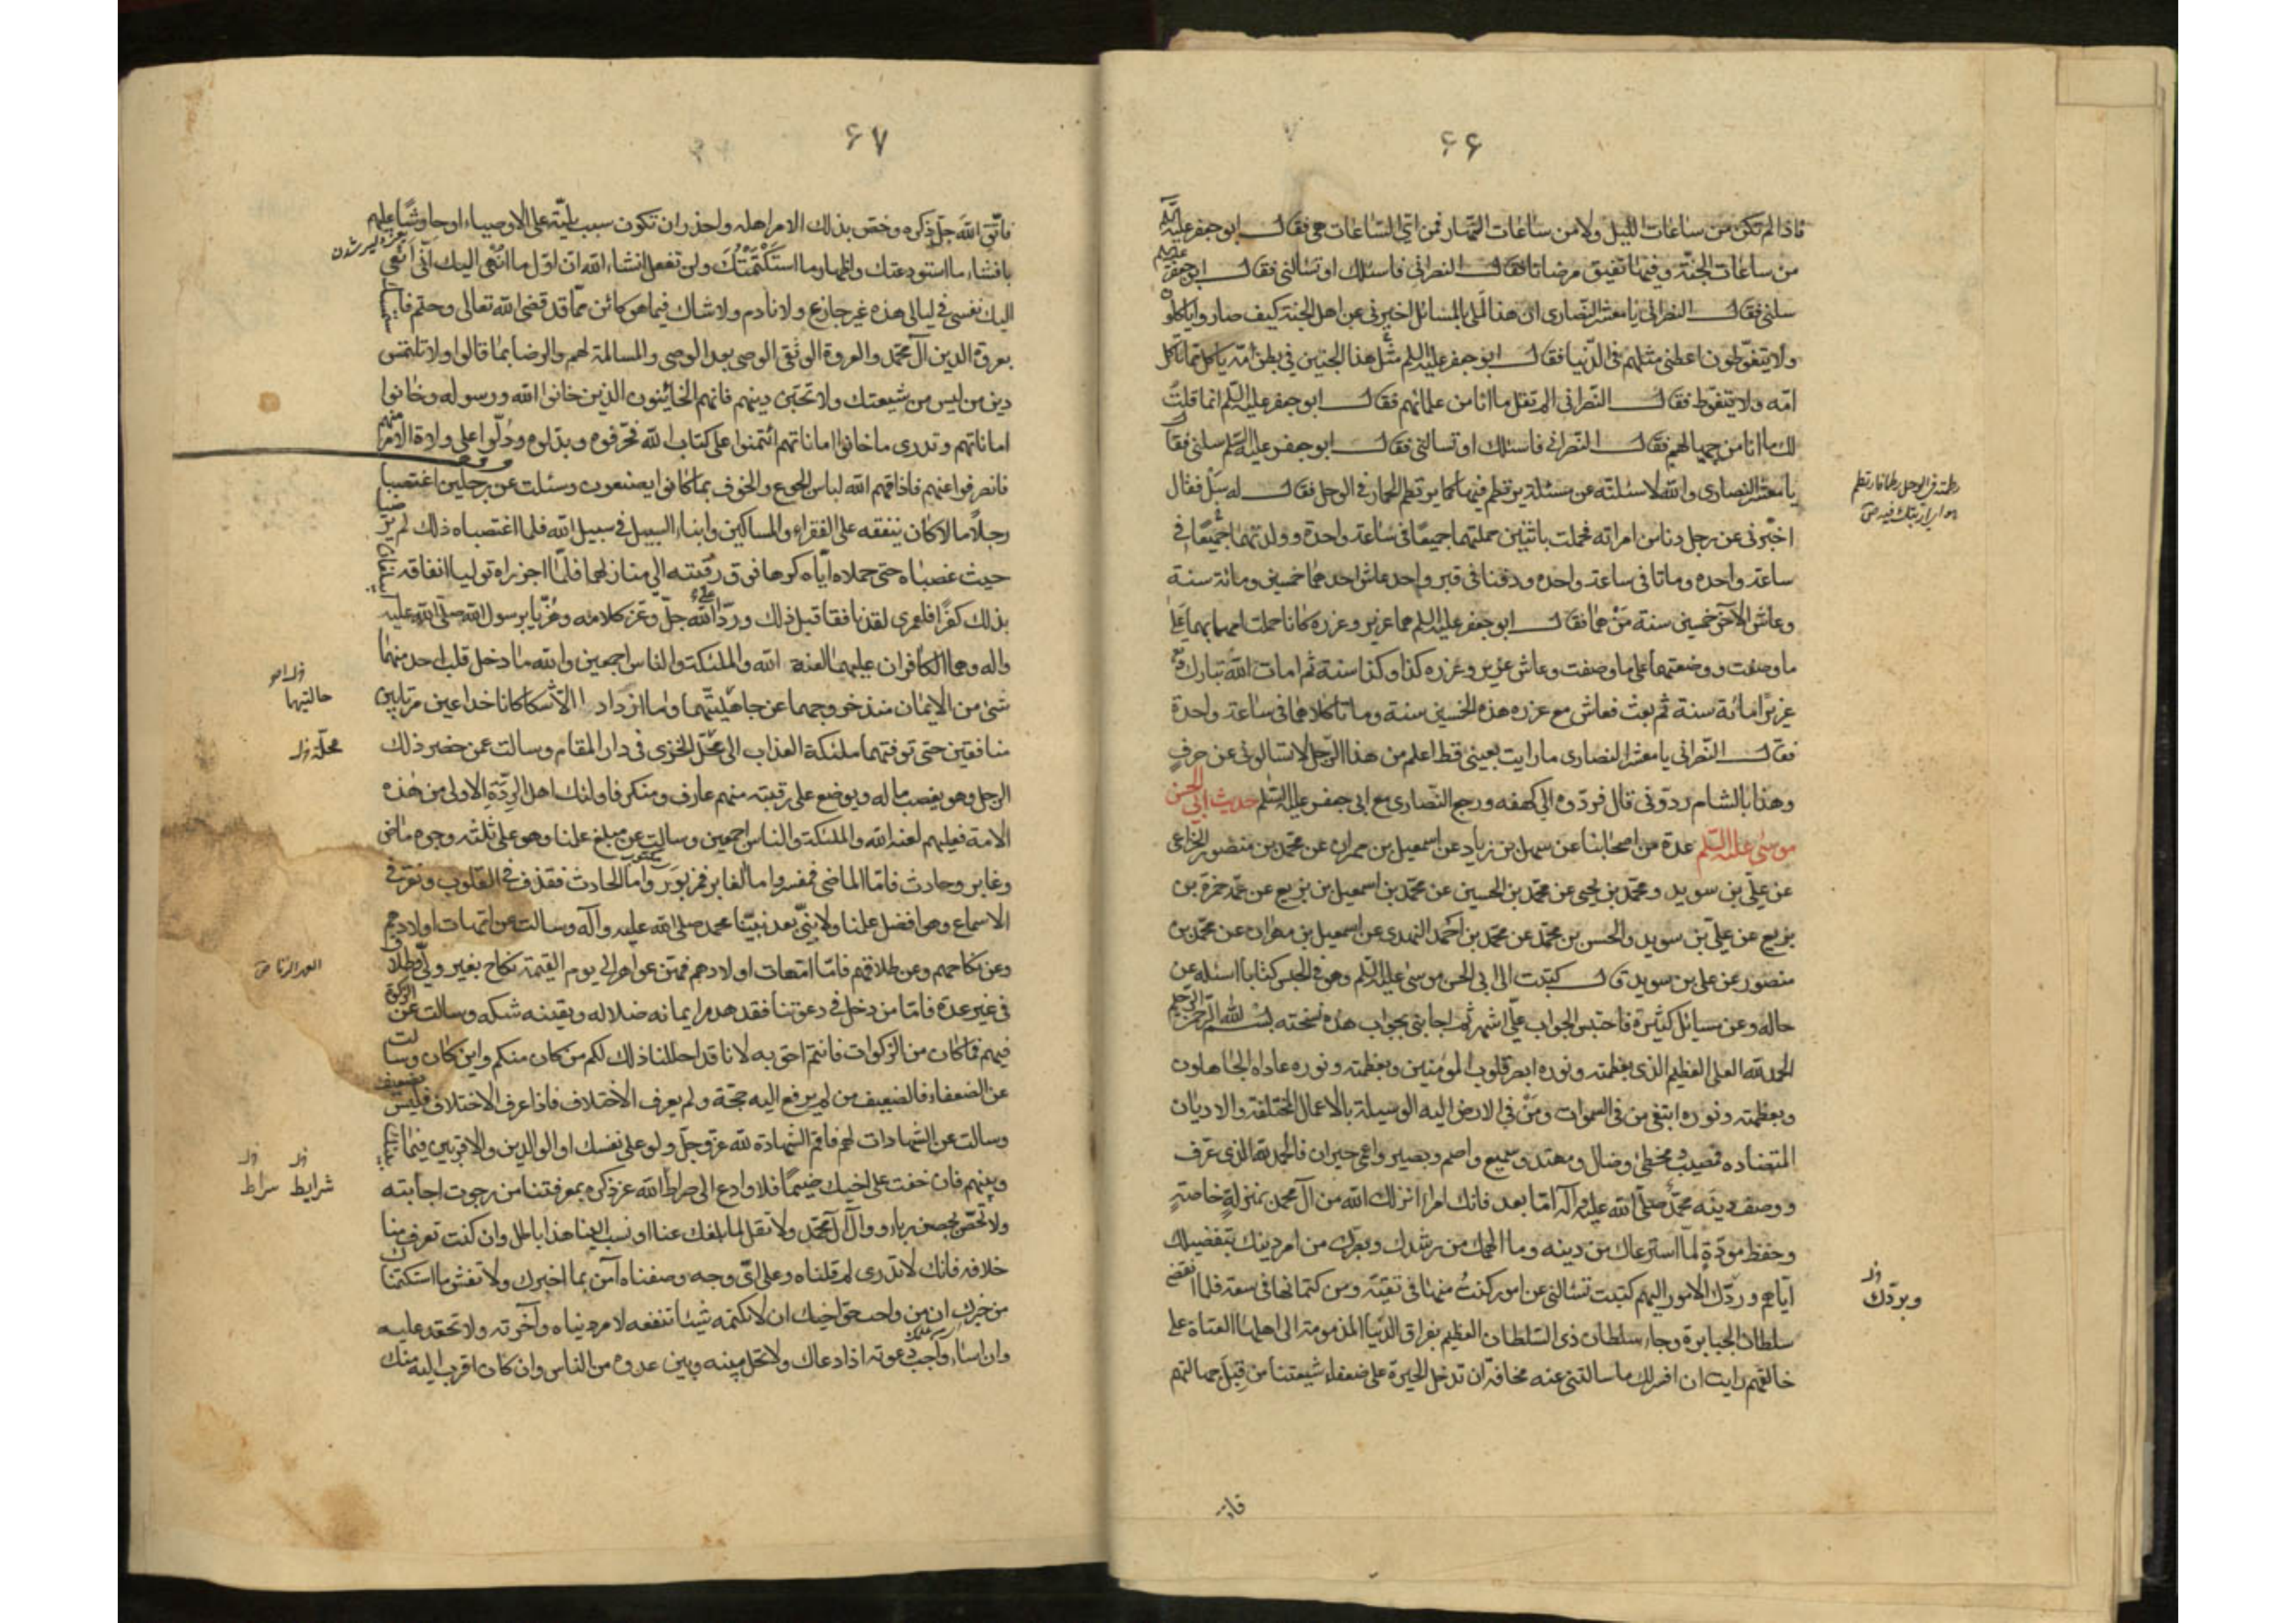 ۶۶
فاذا لم تكن من ساعات الليل ولا من ساعات النهار فمن اي الساعات هي فقال ابو جعفر عليه
من ساعات الجنة وفيها تفيق مرضانا فقال النصراني فاسئلك او تسالني فقال ابو جعفر
سلني فقال النصراني يا معشر النصارى ان هذا لملي بالمسائل اخبرني عن اهل الجنة كيف صاروا ياكلون
ولا يتغوطون اعطني مثلهم في الدنيا فقال ابو جعفر عليه السلم مثل هذا الجنين في بطن امه ياكل مما تاكل
امه ولا يتغوط فقال النصراني الم تقل ما انا من علمائهم فقال ابو جعفر عليه السلم انما قلت
لك ما انا من جهالهم فقال النصراني فاسئلك او تسالني فقال ابو جعفر عليه السلم سلني فقال
يا معشر النصارى والله لاسئلنه عن مسئلة يرتطم فيها كما يرتطم الحمار في الوحل فقال له سل فقال
اخبرني عن رجل دنا من امراته فحملت باثنين حملتهما جميعا في ساعة واحدة وولدتهما جميعا في
ساعة واحده وماتا في ساعة واحده ودفنا في قبر واحد عاش احدهما خمسين ومائة سنة
وعاش الآخر خمسين سنة من هما فقال ابو جعفر عليه السلم هما عزير وعزره كانا حملت امهما بهما على
ما وصفت ووضعتهما على ما وصفت وعاش عزير وعزره كذا وكذا سنة ثم امات الله تبارك
عزيرا مائة سنة ثم بعث فعاش مع عزره هذه الخمسين سنة وماتا كلاهما في ساعة واحدة
فقال النصراني يا معشر النصارى ما رايت بعيني قط اعلم من هذا الرجل لا تسالوني عن حرف
وهذا بالشام ردوني قال فردوه الى كهفه ورجع النصارى مع ابي جعفر عليه السلم حديث ابي الحسن
موسى عليه السلم عدة من اصحابنا عن سهل بن زياد عن اسمعيل بن مهران عن محمد بن منصور الخزاعي
عن علي بن سويد ومحمد بن يحيى عن محمد بن الحسين عن محمد بن اسمعيل بن بزيع عن عمه حمزة بن
بزيع عن علي بن سويد والحسن بن محمد عن محمد بن احمد النهدي عن اسمعيل بن مهران عن محمد بن
منصور عن علي بن سويد قال كتبت الى ابي الحسن موسى عليه السلم وهو في الحبس كتابا اسئله عن
حاله وعن مسائل كثيرة فاحتبس الجواب علي اشهر ثم اجابني بجواب هذه نسخته بسم الله الرحمن الرحيم
الحمد لله العلي العظيم الذي بعظمته ونوره ابصر قلوب المؤمنين وبعظمته ونوره عاداه الجاهلون
وبعظمته ونوره ابتغى من في السموات ومن في الارض اليه الوسيلة بالاعمال المختلفة والاديان
المتضاده فمصيب ومخطئ وضال ومهتد وسميع واصم وبصير واعمى حيران فالحمد لله الذي عرف
ووصف دينه محمد صلى الله عليه وآله اما بعد فانك امرا انزلك الله من آل محمد بمنزلة خاصة
وحفظ مودة لما استرعاك من دينه وما الهمك من رشدك وبصرك من امر دينك بتفضيلك
اياهم وردك الامور اليهم كتبت تسالني عن امور كنت منها في تقية ومن كتمانها في سعة فلما انقضى
سلطان الجبابرة وجاء سلطان ذي السلطان العظيم بفراق الدنيا المذمومة الى اهلها العتاة على
خالقهم رايت ان افسر لك ما سالتني عنه مخافة ان تدخل الحيرة على ضعفاء شيعتنا من قبل جهالتهم
وبردك
فاتق
۶۷
فاتق الله جل ذكره وخص بذلك الامر اهله واحذر ان تكون سبب بلية على الاوصياء او حارشا عليهم
بافشاء ما استودعتك واظهار ما استكتمتك ولن تفعل انشاء الله ان اول ما انهي اليك اني انعى
اليك نفسي في ليالي هذه غير جازع ولا نادم ولا شاك فيما هو كائن مما قد قضى الله تعالى وحتم فاستمسك
بعروة الدين آل محمد والعروة الوثقى الوصي بعد الوصي والمسالمة لهم والرضا بما قالوا ولا تلتمس
دين من ليس من شيعتك ولا تحبن دينهم فانهم الخائنون الذين خانوا الله ورسوله وخانوا
اماناتهم وتدري ما خانوا اماناتهم ائتمنوا على كتاب الله فحرفوه وبدلوه ودلوا على ولاة الامر منهم
فانصرفوا عنهم فاذاقهم الله لباس الجوع والخوف بما كانوا يصنعون وسئلت عن رجلين اغتصبا
رجلا مالا كان ينفقه على الفقراء والمساكين وابناء السبيل في سبيل الله فلما اغتصباه ذلك لم يرضيا
حيث غصباه حتى حملاه اياه كرها فوق رقبته الى منازلهما فلما احرزاه توليا انفاقه ايبلغان
بذلك كفرا فلعمري لقد نافقا قبل ذلك وردا على الله جل وعز كلامه وهزئا برسول الله صلى الله عليه
وآله وهما الكافران عليهما لعنة الله والملئكة والناس اجمعين والله ما دخل قلب احد منهما
شئ من الايمان منذ خروجهما عن جاهليتهما وما ازداد الا شكا كانا خداعين مرتابين
منافقين حتى توفتهما ملئكة العذاب الى محل الخزي في دار المقام وسالت عمن حضر ذلك
الرجل وهو يغصب ماله ويوضع على رقبته منهم عارف ومنكر فاولئك اهل الردة الاولى من هذه
الامة فعليهم لعنة الله والملئكة والناس اجمعين وسالت عن مبلغ علمنا وهو على ثلثة وجوه ماض
وغابر وحادث فاما الماضي فمفسر واما الغابر فمزبور واما الحادث فقذف في القلوب ونقر في
الاسماع وهو افضل علمنا ولا نبي بعد نبينا محمد صلى الله عليه وآله وسالت عن امهات اولادهم
وعن نكاحهم وعن طلاقهم فاما امهات اولادهم فهن عواهر الى يوم القيمة نكاح بغير ولي وطلاق
في غير عدة فاما من دخل في دعوتنا فقد هدم ايمانه ضلاله ويقينه شكه وسالت عن الزكوة
فيهم فما كان من الزكوات فانتم احق به لانا قد احللنا ذلك لكم من كان منكم واين كان وسالت
عن الضعفاء فالضعيف من لم يرفع اليه حجة ولم يعرف الاختلاف فاذا عرف الاختلاف فليس بضعيف
وسالت عن الشهادات لهم فاقم الشهادة لله عز وجل ولو على نفسك او الوالدين والاقربين فيما بينك
وبينهم فان خفت على اخيك ضيما فلا وادع الى صراط الله عز ذكره بمعرفتنا من رجوت اجابته
ولا تحصن بحصن رياء ووال آل محمد ولا تقل لما بلغك عنا او نسب الينا هذا باطل وان كنت تعرف منا
خلافه فانك لا تدري لم قلناه وعلى اي وجه وصفناه آمن بما اخبرك ولا تفش ما استكتمناك
من خبرك ان من واجب حق اخيك ان لا تكتمه شيئا تنفعه لامر دنياه وآخرته ولا تحقد عليه
وان اساء واجب دعوته اذا دعاك ولا تخل بينه وبين عدوه من الناس وان كان اقرب اليه منك
حالتيهما
محلة
شرايط سراط